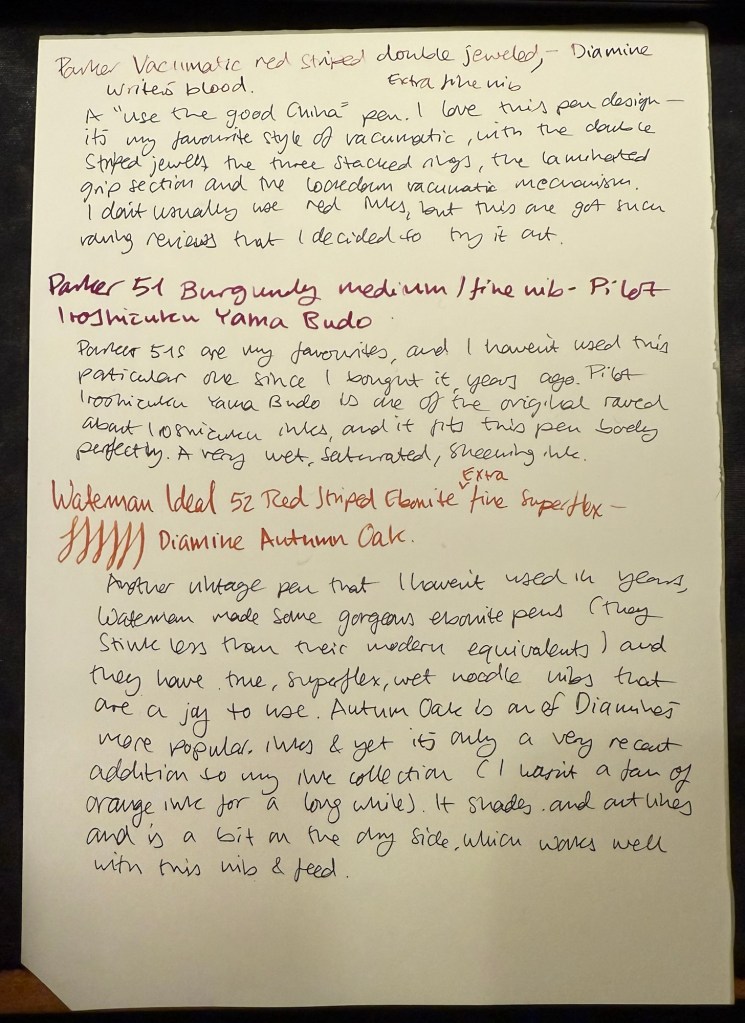 Parker Vacumatic red striped double jeweled, - Diamine
Writer's blood. Extra fine nib
A "use the good China" pen. I love this pen design -
it's my favourite style of vacumatic, with the double
striped jewels the three stacked rings, the laminated
grip section and the lockdown vacumatic mechanism.
I don't usually use red inks, but this one got such
raving reviews that I decided to try it out.
Parker 51 Burgundy medium/fine nib - Pilot
Iroshizuku Yama Budo
Parker 51s are my favourites, and I haven't used this
particular one since I bought it, years ago. Pilot
Iroshizuku Yama Budo is one of the original raved
about Iroshizuku inks, and it fits this pen body
perfectly. A very wet, saturated, sheening ink.
Waterman Ideal 52 Red Striped Ebonite Extra fine Superflex -
Diamine Autumn Oak.
Another vintage pen that I haven't used in years,
Waterman made some gorgeous ebonite pens (they
stink less than their modern equivalents) and
they have true, superflex, wet noodle nibs that
are a joy to use. Autumn Oak is on of Diamine's
more popular inks & yet it's only a very recent
addition to my ink collection (I wasn't a fan of
orange ink for a long while). It shades and outlines
and is a bit on the dry side, which works well
with this nib & feed.